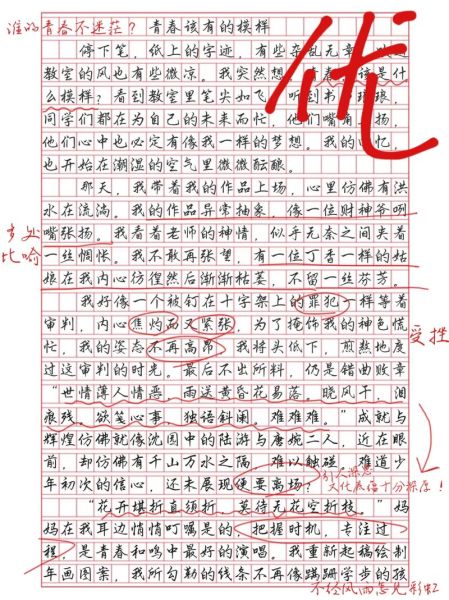 谁的青春不迷茫？ 青春该有的模样
优
停下笔，纸上的字迹，有些杂乱无章，
教室的风也有些微凉。我突然想，青春 该是什
么模样？看到教室里笔尖如飞，听到书 琅琅，
同学们都在为自己的未来而忙，他们嘴角 扬，
他们心中也必定有像我一样的梦想。我的 忆，
也开始在潮湿的空气里微微酝酿。
那天，我带着我的作品上场，心里仿佛有洪
水在流淌。我的作品异常抽象，像一位财神爷咧
多处比喻
嘴张扬。我看着老师的神情，似乎无奈之间夹着
一丝惆怅。我不敢再张望，有一位丁香一样的姑
娘在我内心彷徨然后渐渐枯萎，不留一丝芬芳。
我好像一个被钉在十字架上的罪犯一样等着
审判，内心焦灼而又紧张，为了掩饰我的神色慌
受挫
忙，我的姿态不再高昂。我将头低下，煎熬地度
过这审判的时光。最后不出所料，仍是错曲败章
“世情薄人情恶，雨送黄昏花易落。晓风干，泪
痕残。欲笺心事，独语斜阑。难难难。”成就与
辉煌仿佛就像沈园中的陆游与唐婉二人，近在眼
前，却仿佛有千山万水之隔，难以触碰，难道少
引人深思
年初次的信心，还未展现便要离场？
文化底蕴十分深厚！
“花开堪折直须折，莫待无花空折枝。”妈
妈在我耳边悄悄叮嘱是的，把握时机，专注过
程，是青春和鸣中最好的演唱。我重新起稿绘制
年画图案，我所勾勒的线条不再像蹒跚学步的孩
不经风雨怎见彩虹